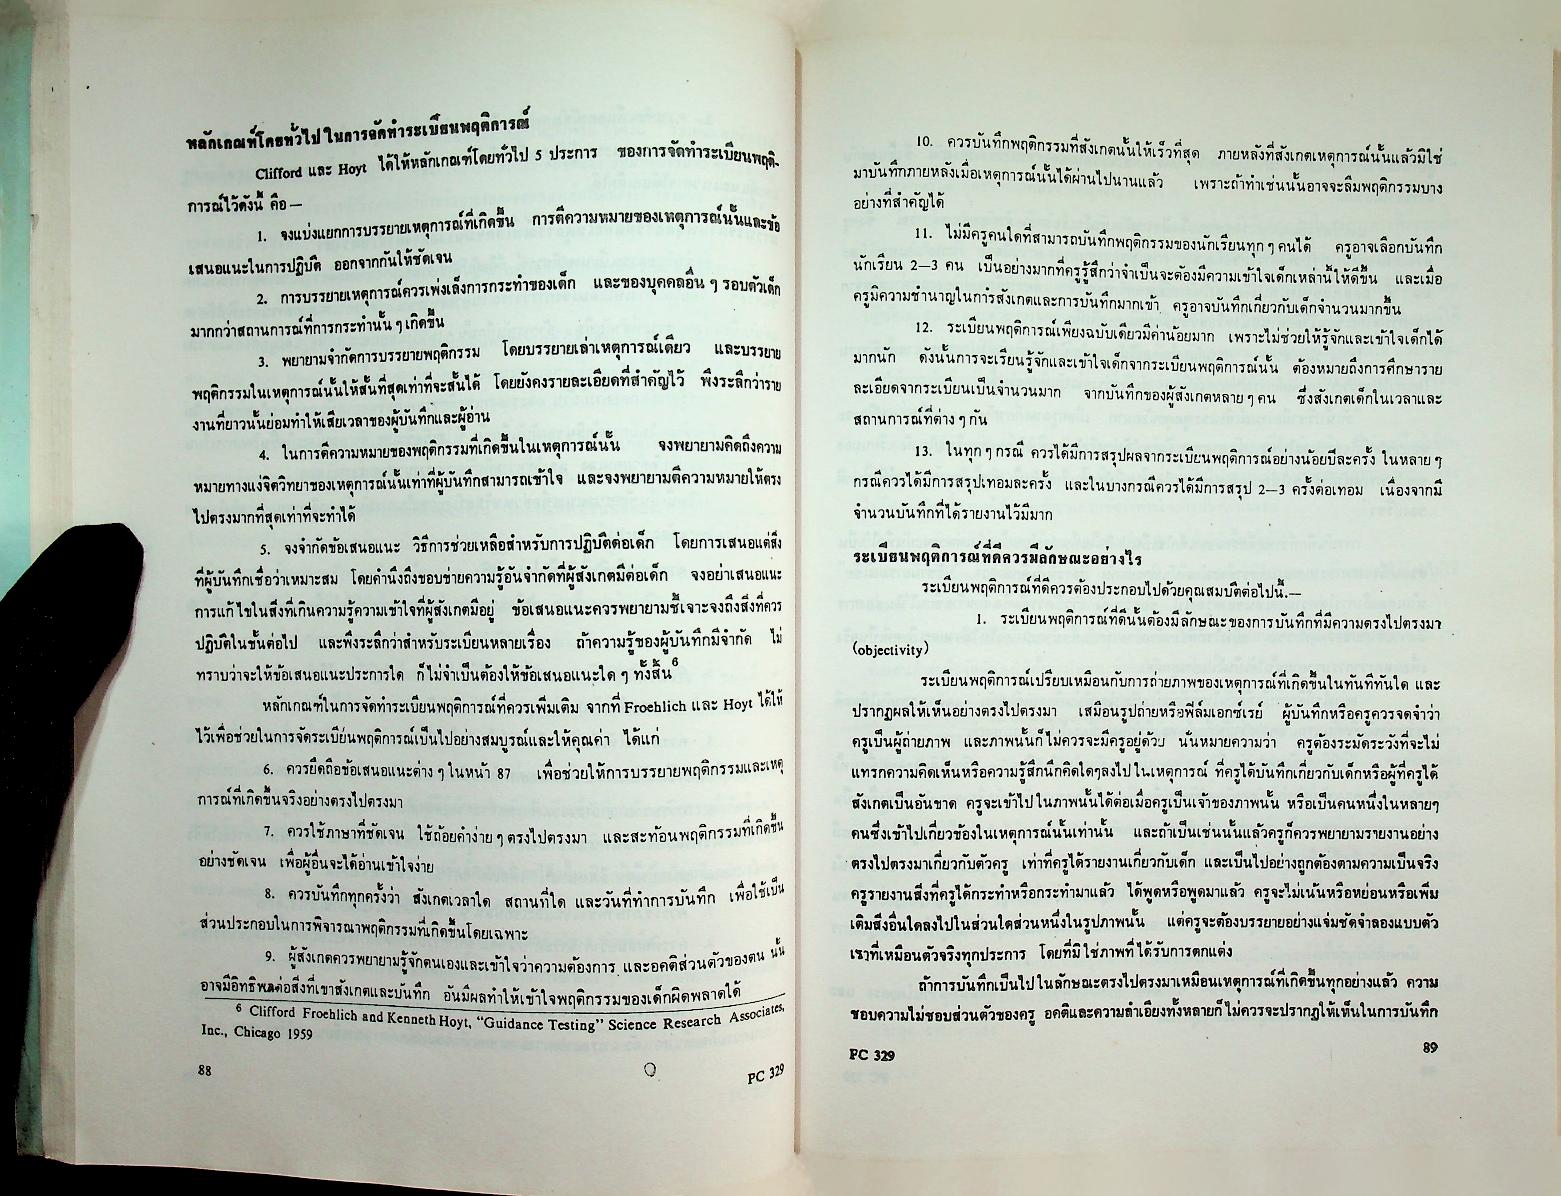 หลักเกณฑ์โดยทั่วไป ในการจัดทำระเบียนพฤติการณ์
Clifford และ Hoyt ได้ให้หลักเกณฑ์โดยทั่วไป 5 ประการ ของการจัดทำระเบียนพฤติ-
การณ์ไว้ดังนี้ คือ—
1. จงแบ่งแยกการบรรยายเหตุการณ์ที่เกิดขึ้น การตีความหมายของเหตุการณ์นั้นและข้อ
เสนอแนะในการปฏิบัติ ออกจากกันให้ชัดเจน
2. การบรรยายเหตุการณ์ควรเพ่งเล็งการกระทำของเด็ก และของบุคคลอื่น ๆ รอบตัวเด็ก
มากกว่าสถานการณ์ที่การกระทำนั้น ๆ เกิดขึ้น
3. พยายามจำกัดการบรรยายพฤติกรรม โดยบรรยายเล่าเหตุการณ์เดียว และบรรยาย
พฤติกรรมในเหตุการณ์นั้นให้สั้นที่สุดเท่าที่จะสั้นได้ โดยยังคงรายละเอียดที่สำคัญไว้ พึงระลึกว่าราย
งานที่ยาวนั้นย่อมทำให้เสียเวลาของผู้บันทึกและผู้อ่าน
4. ในการตีความหมายของพฤติกรรมที่เกิดขึ้นในเหตุการณ์นั้น จงพยายามคิดถึงความ
หมายทางแง่จิตวิทยาของเหตุการณ์นั้นเท่าที่ผู้บันทึกสามารถเข้าใจ และจงพยายามตีความหมายให้ตรง
ไปตรงมากที่สุดเท่าที่จะทำได้
5. จงจำกัดข้อเสนอแนะ วิธีการช่วยเหลือสำหรับการปฏิบัติต่อเด็ก โดยการเสนอแต่สิ่ง
ที่ผู้บันทึกเชื่อว่าเหมาะสม โดยคำนึงถึงขอบข่ายความรู้อันจำกัดที่ผู้สังเกตมีต่อเด็ก จงอย่าเสนอแนะ
การแก้ไขในสิ่งที่เกินความรู้ความเข้าใจที่ผู้สังเกตมีอยู่ ข้อเสนอแนะควรพยายามชี้เจาะจงถึงสิ่งที่ควร
ปฏิบัติในขั้นต่อไป และพึงระลึกว่าสำหรับระเบียนหลายเรื่อง ถ้าความรู้ของผู้บันทึกมีจำกัด ไม่
ทราบว่าจะให้ข้อเสนอแนะประการใด ก็ไม่จำเป็นต้องให้ข้อเสนอแนะใด ๆ ทั้งสิ้น6
หลักเกณฑ์ในการจัดทำระเบียนพฤติการณ์ที่ควรเพิ่มเติม จากที่ Froehlich และ Hoyt ได้ให้
ไว้เพื่อช่วยในการจัดระเบียนพฤติการณ์เป็นไปอย่างสมบูรณ์และให้คุณค่า ได้แก่
6. ควรยึดถือข้อเสนอแนะต่าง ๆ ในหน้า 87 เพื่อช่วยให้การบรรยายพฤติกรรมและเหตุ
การณ์ที่เกิดขึ้นจริงอย่างตรงไปตรงมา
7. ควรใช้ภาษาที่ชัดเจน ใช้ถ้อยคำง่าย ๆ ตรงไปตรงมา และสะท้อนพฤติกรรมที่เกิดขึ้น
อย่างชัดเจน เพื่อผู้อื่นจะได้อ่านเข้าใจง่าย
8. ควรบันทึกทุกครั้งว่า สังเกตเวลาใด สถานที่ใด และวันที่ทำการบันทึก เพื่อใช้เป็น
ส่วนประกอบในการพิจารณาพฤติกรรมที่เกิดขึ้นโดยเฉพาะ
9. ผู้สังเกตควรพยายามรู้จักตนเองและเข้าใจว่าความต้องการ และอคติส่วนตัวของตน นั้น
อาจมีอิทธิพลต่อสิ่งที่เขาสังเกตและบันทึก อันมีผลทำให้เข้าใจพฤติกรรมของเด็กผิดพลาดได้
6 Clifford Froehlich and Kenneth Hoyt, “Guidance Testing” Science Research Associates,
Inc., Chicago 1959
88
PC 329
10. ควรบันทึกพฤติกรรมที่สังเกตนั้นให้เร็วที่สุด ภายหลังที่สังเกตเหตุการณ์นั้นแล้วมิใช่
มาบันทึกภายหลังเมื่อเหตุการณ์นั้นได้ผ่านไปนานแล้ว เพราะถ้าทำเช่นนั้นอาจจะลืมพฤติกรรมบาง
อย่างที่สำคัญได้
11. ไม่มีครูคนใดที่สามารถบันทึกพฤติกรรมของนักเรียนทุก ๆ คนได้ ครูอาจเลือกบันทึก
นักเรียน 2—3 คน เป็นอย่างมากที่ครูรู้สึกว่าจำเป็นจะต้องมีความเข้าใจเด็กเหล่านี้ให้ดีขึ้น และเมื่อ
ครูมีความชำนาญในการสังเกตและการบันทึกมากเข้า ครูอาจบันทึกเกี่ยวกับเด็กจำนวนมากขึ้น
12. ระเบียนพฤติการณ์เพียงฉบับเดียวมีค่าน้อยมาก เพราะไม่ช่วยให้รู้จักและเข้าใจเด็กได้
มากนัก ดังนั้นการจะเรียนรู้จักและเข้าใจเด็กจากระเบียนพฤติการณ์นั้น ต้องหมายถึงการศึกษาราย
ละเอียดจากระเบียนเป็นจำนวนมาก จากบันทึกของผู้สังเกตหลาย ๆ คน ซึ่งสังเกตเด็กในเวลาและ
สถานการณ์ที่ต่าง ๆ กัน
13. ในทุก ๆ กรณี ควรได้มีการสรุปผลจากระเบียนพฤติการณ์อย่างน้อยปีละครั้ง ในหลาย ๆ
กรณีควรได้มีการสรุปเทอมละครั้ง และในบางกรณีควรได้มีการสรุป 2—3 ครั้งต่อเทอม เนื่องจากมี
จำนวนบันทึกที่ได้รายงานไว้มีมาก
ระเบียนพฤติการณ์ที่ดีควรมีลักษณะอย่างไร
ระเบียนพฤติการณ์ที่ดีควรต้องประกอบไปด้วยคุณสมบัติต่อไปนี้.—
1. ระเบียนพฤติการณ์ที่ดีนั้นต้องมีลักษณะของการบันทึกที่มีความตรงไปตรงมา
(objectivity)
ระเบียนพฤติการณ์เปรียบเหมือนกับการถ่ายภาพของเหตุการณ์ที่เกิดขึ้นในทันทีทันใด และ
ปรากฏผลให้เห็นอย่างตรงไปตรงมา เสมือนรูปถ่ายหรือฟิล์มเอกซ์เรย์ ผู้บันทึกหรือครูควรจดจำว่า
ครูเป็นผู้ถ่ายภาพ และภาพนั้นก็ไม่ควรจะมีครูอยู่ด้วย นั่นหมายความว่า ครูต้องระมัดระวังที่จะไม่
แทรกความคิดเห็นหรือความรู้สึกนึกคิดใดๆลงไป ในเหตุการณ์ ที่ครูได้บันทึกเกี่ยวกับเด็กหรือผู้ที่ครูได้
สังเกตเป็นอันขาด ครูจะเข้าไป ในภาพนั้นได้ต่อเมื่อครูเป็นเจ้าของภาพนั้น หรือเป็นคนหนึ่งในหลายๆ
คนซึ่งเข้าไปเกี่ยวข้องในเหตุการณ์นั้นเท่านั้น และถ้าเป็นเช่นนั้นแล้วครูก็ควรพยายามรายงานอย่าง
ตรงไปตรงมาเกี่ยวกับตัวครู เท่าที่ครูได้รายงานเกี่ยวกับเด็ก และเป็นไปอย่างถูกต้องตามความเป็นจริง
ครูรายงานสิ่งที่ครูได้กระทำหรือกระทำมาแล้ว ได้พูดหรือพูดมาแล้ว ครูจะไม่เน้นหรือหย่อนหรือเพิ่ม
เติมสิ่งอื่นใดลงไปในส่วนใดส่วนหนึ่งในรูปภาพนั้น แต่ครูจะต้องบรรยายอย่างแจ่มชัดจำลองแบบตัว
เราที่เหมือนตัวจริงทุกประการ โดยที่มิใช่ภาพที่ได้รับการตกแต่ง
ถ้าการบันทึกเป็นไป ในลักษณะตรงไปตรงมาเหมือนเหตุการณ์ที่เกิดขึ้นทุกอย่างแล้ว ความ
ชอบความไม่ชอบส่วนตัวของครู อคติและความลำเอียงทั้งหลายก็ไม่ควรจะปรากฏให้เห็นในการบันทึก
PC 329
89